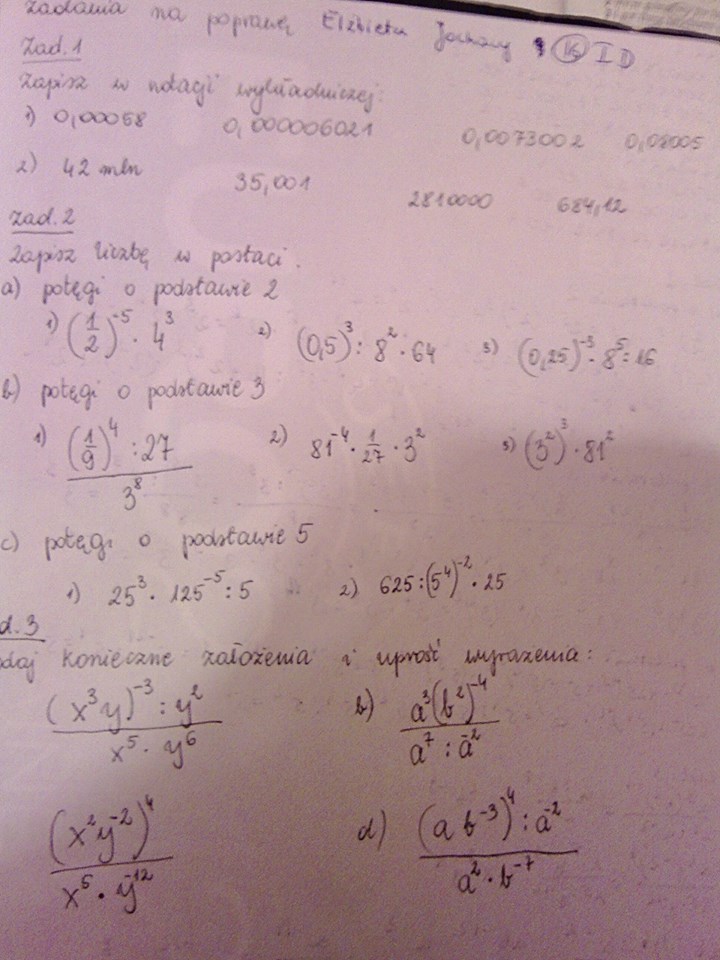 zadania na poprawę Elżbieta
Zad. 1
Zapisz w notacji wykładniczej:
1) 0,00068 0,000006021 0,0073002 0,08005
2) 42 mln 35,001 2810000 684,12
Zad. 2
Zapisz liczbę w postaci.
a) potęgi o podstawie 2
1) (1/2)⁻⁵ · 4³ 2) (0,5)³ : 8² · 64 3) (0,25)⁻³ · 8⁵ : 16
b) potęgi o podstawie 3
1) ((1/9)⁴ : 27) / 3⁸ 2) 81⁻⁴ · 1/27 · 3² 3) (3²)³ · 81²
c) potęgi o podstawie 5
1) 25³ · 125⁻⁵ : 5 2) 625 : (5⁴)⁻² · 25
d. 3
daj konieczne założenia i uprość wyrażenia:
((x³y)⁻³ : y²) / (x⁵ · y⁶) b) (a³(b²)⁻⁴) / (a⁷ : a⁻²)
(x²y⁻²)⁴ / (x⁵ · y⁻¹²) d) ((ab⁻³)⁴ : a⁻²) / (a² · b⁻⁷)